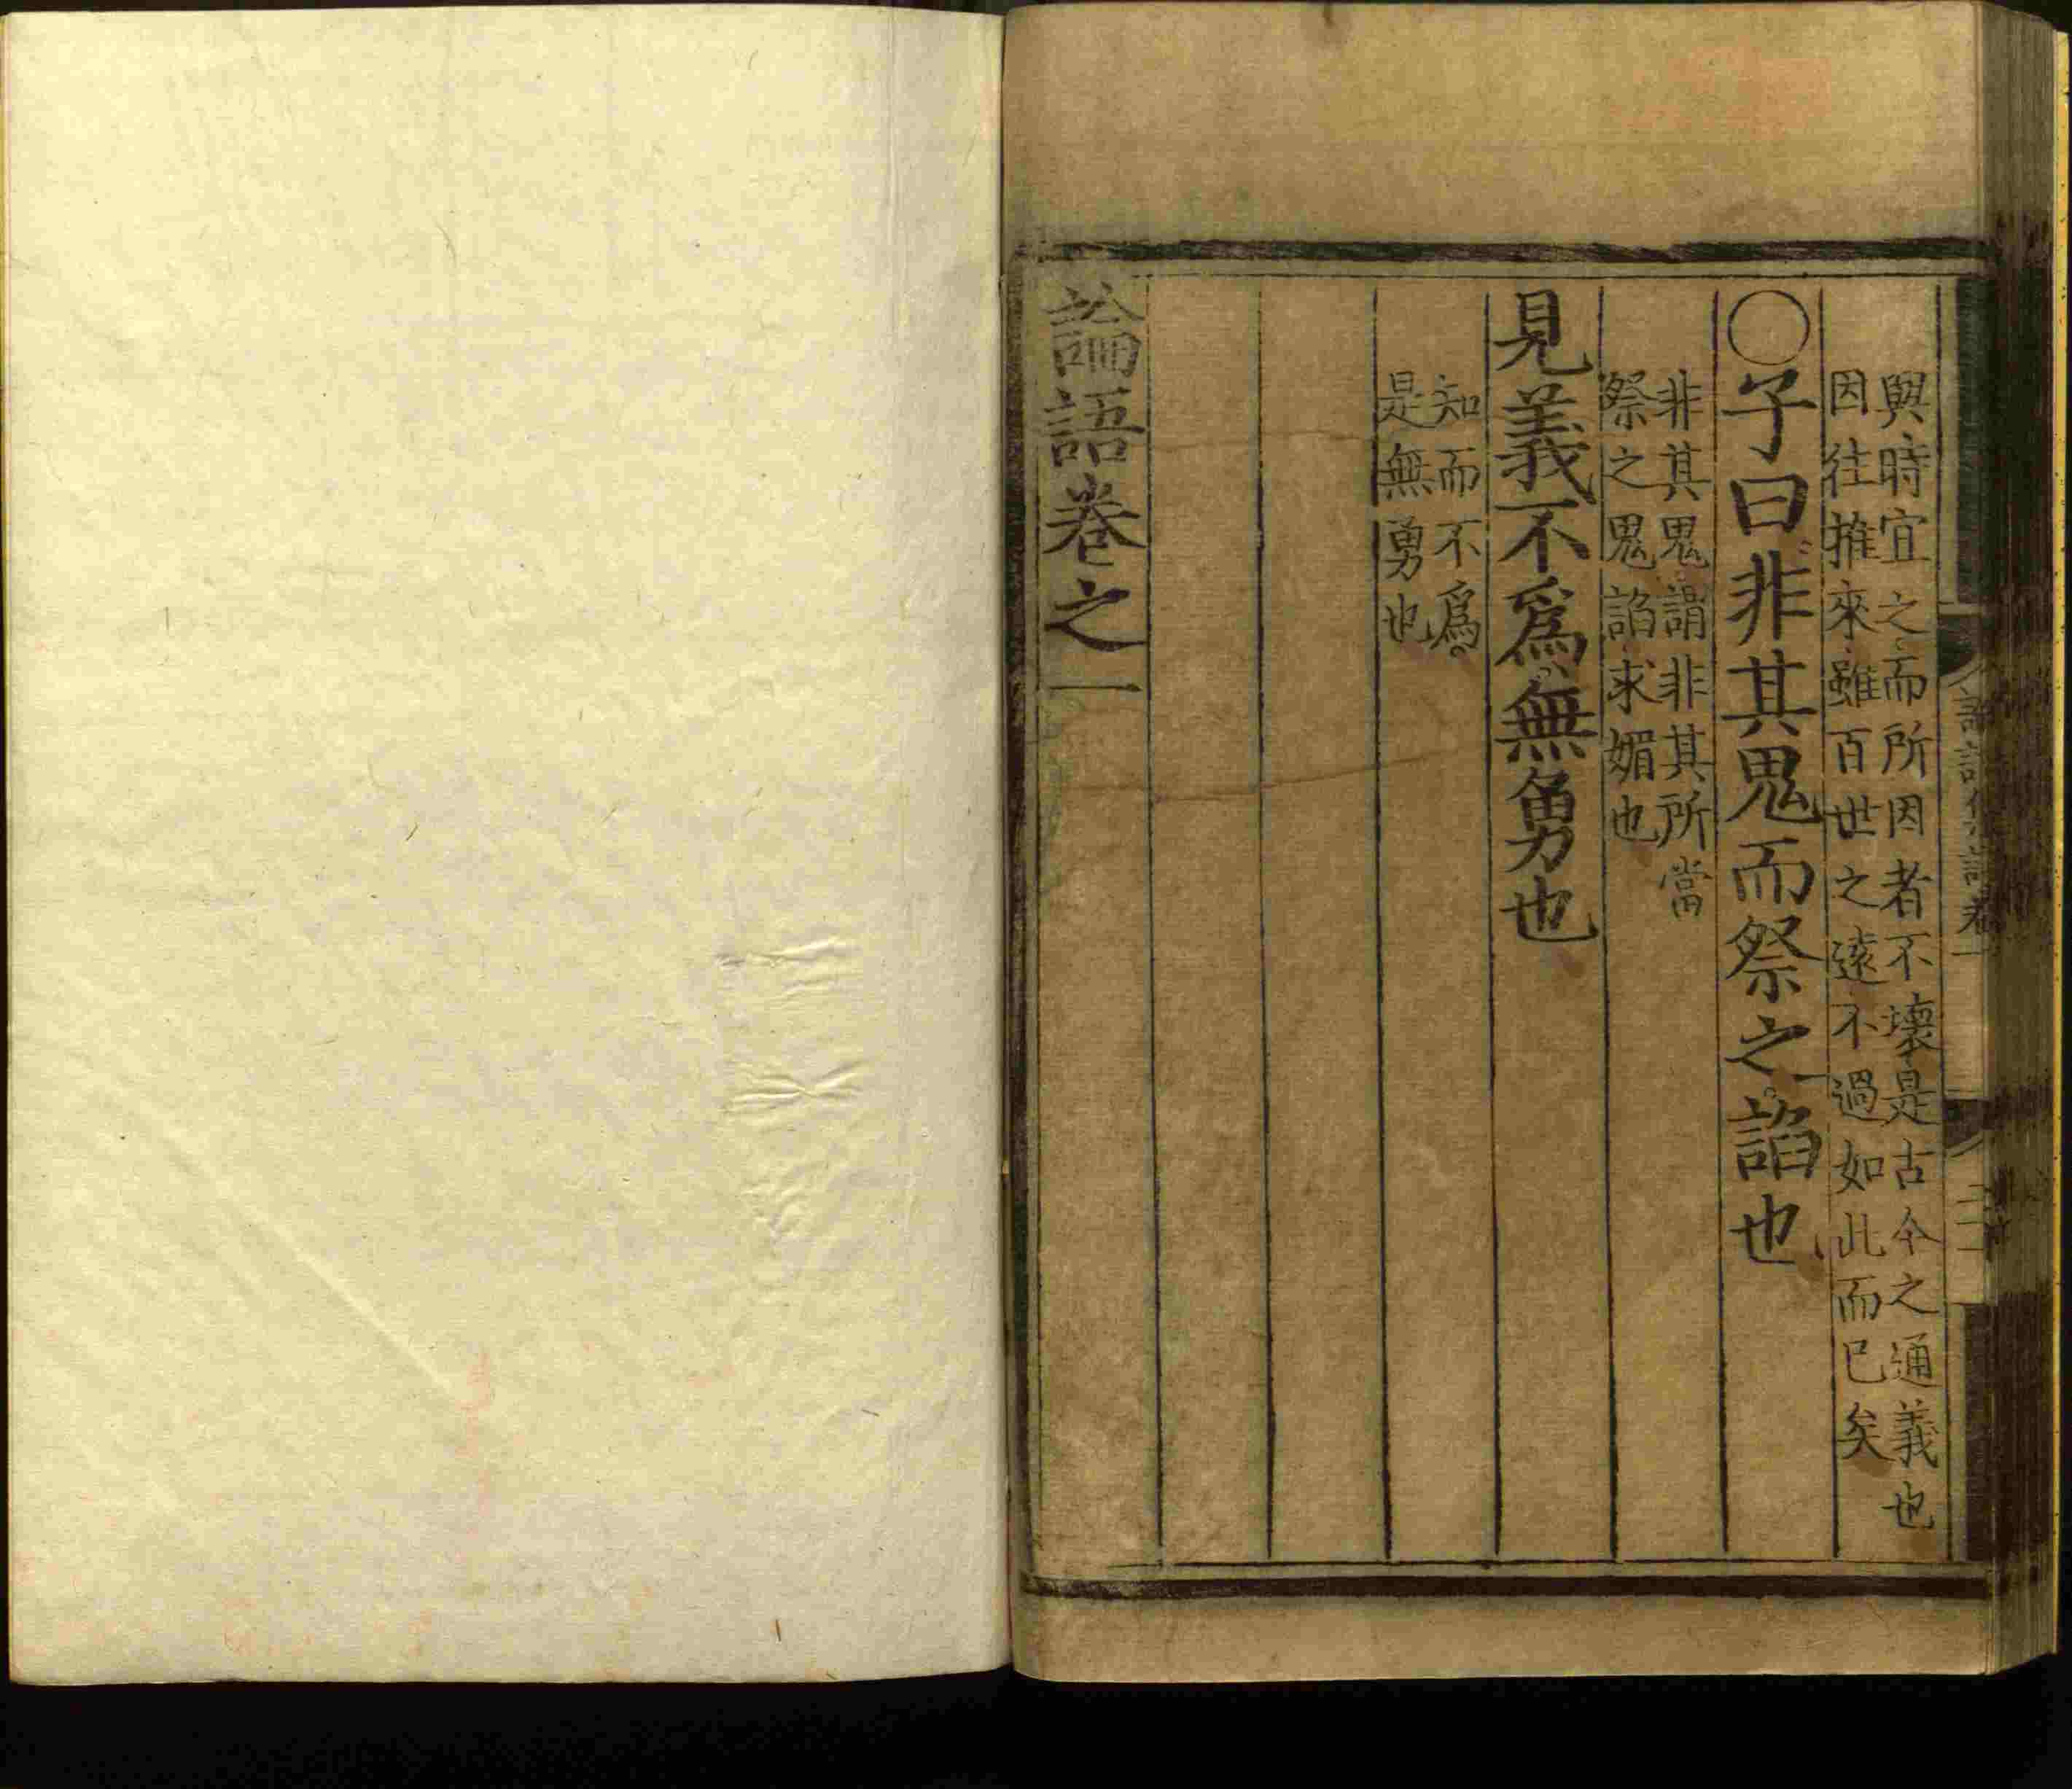 與時宜之而所因者不壞是古今之通義也
因往推來雖百世之遠不過如此而已矣
○子曰非其鬼而祭之諂也
非其鬼謂非其所當
祭之鬼諂求媚也
見義不爲無勇也
知而不爲
是無勇也
論語卷之一